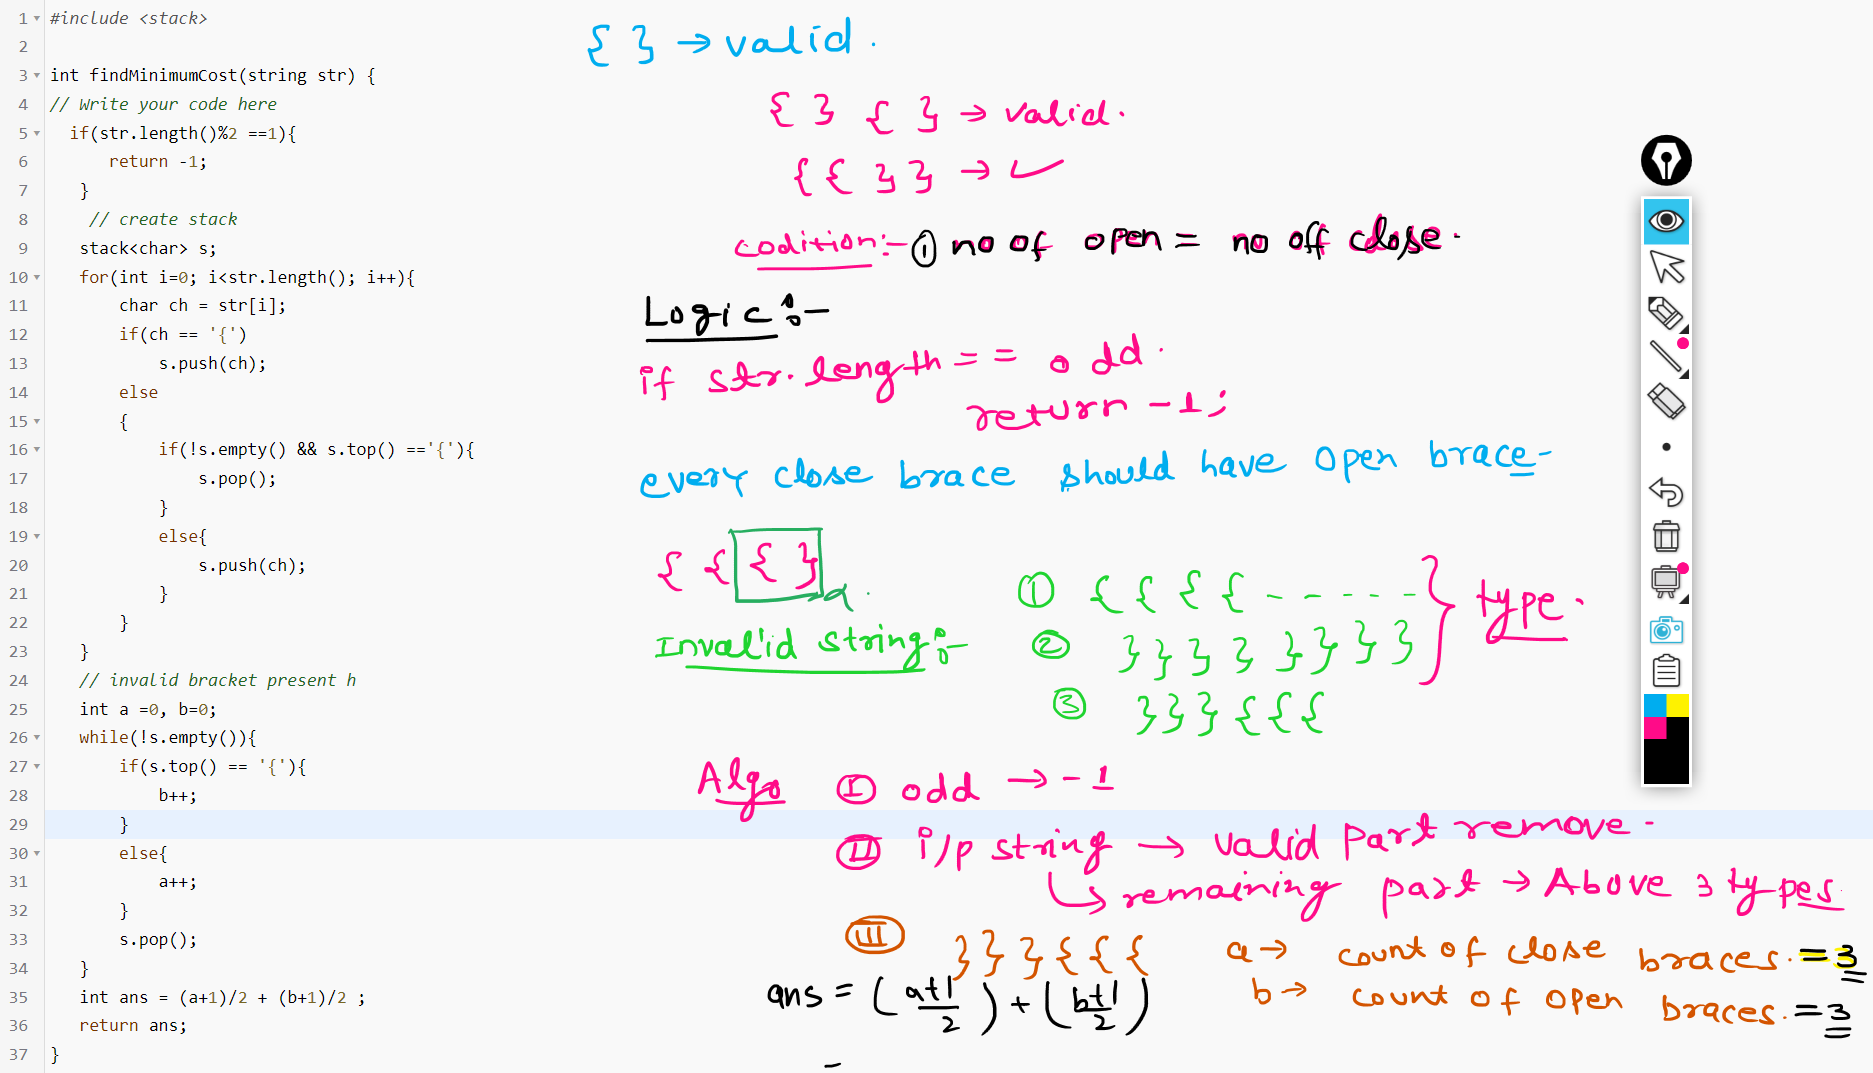 1 #include <stack>
2
3 int findMinimumCost(string str) {
4 // Write your code here
5 if(str.length()%2 ==1){
6 return -1;
7 }
8 // create stack
9 stack<char> s;
10 for(int i=0; i<str.length(); i++){
11 char ch = str[i];
12 if(ch == '{')
13 s.push(ch);
14 else
15 {
16 if(!s.empty() && s.top() =='{'){
17 s.pop();
18 }
19 else{
20 s.push(ch);
21 }
22 }
23 }
24 // invalid bracket present h
25 int a =0, b=0;
26 while(!s.empty()){
27 if(s.top() == '{'){
28 b++;
29 }
30 else{
31 a++;
32 }
33 s.pop();
34 }
35 int ans = (a+1)/2 + (b+1)/2 ;
36 return ans;
37 }
{ } → valid .
{ } { } → valid.
{ { } } → ✓
codition:- ① no of open = no off close.
Logic:-
if str.length == odd.
return -1;
every close brace should have open brace-
{ { { }
Invalid string:-
① { { { { - - - - -
② } } } } } } } }
③ } } } { { {
} type.
Algo Ⓘ odd → -1
Ⓘⓘ i/p string → valid part remove.
↳ remaining part → Above 3 types.
ⓘⓘⓘ } } } { { {
a → count of close braces. = 3
b → count of open braces. = 3
ans = (a+1/2) + (b+1/2)